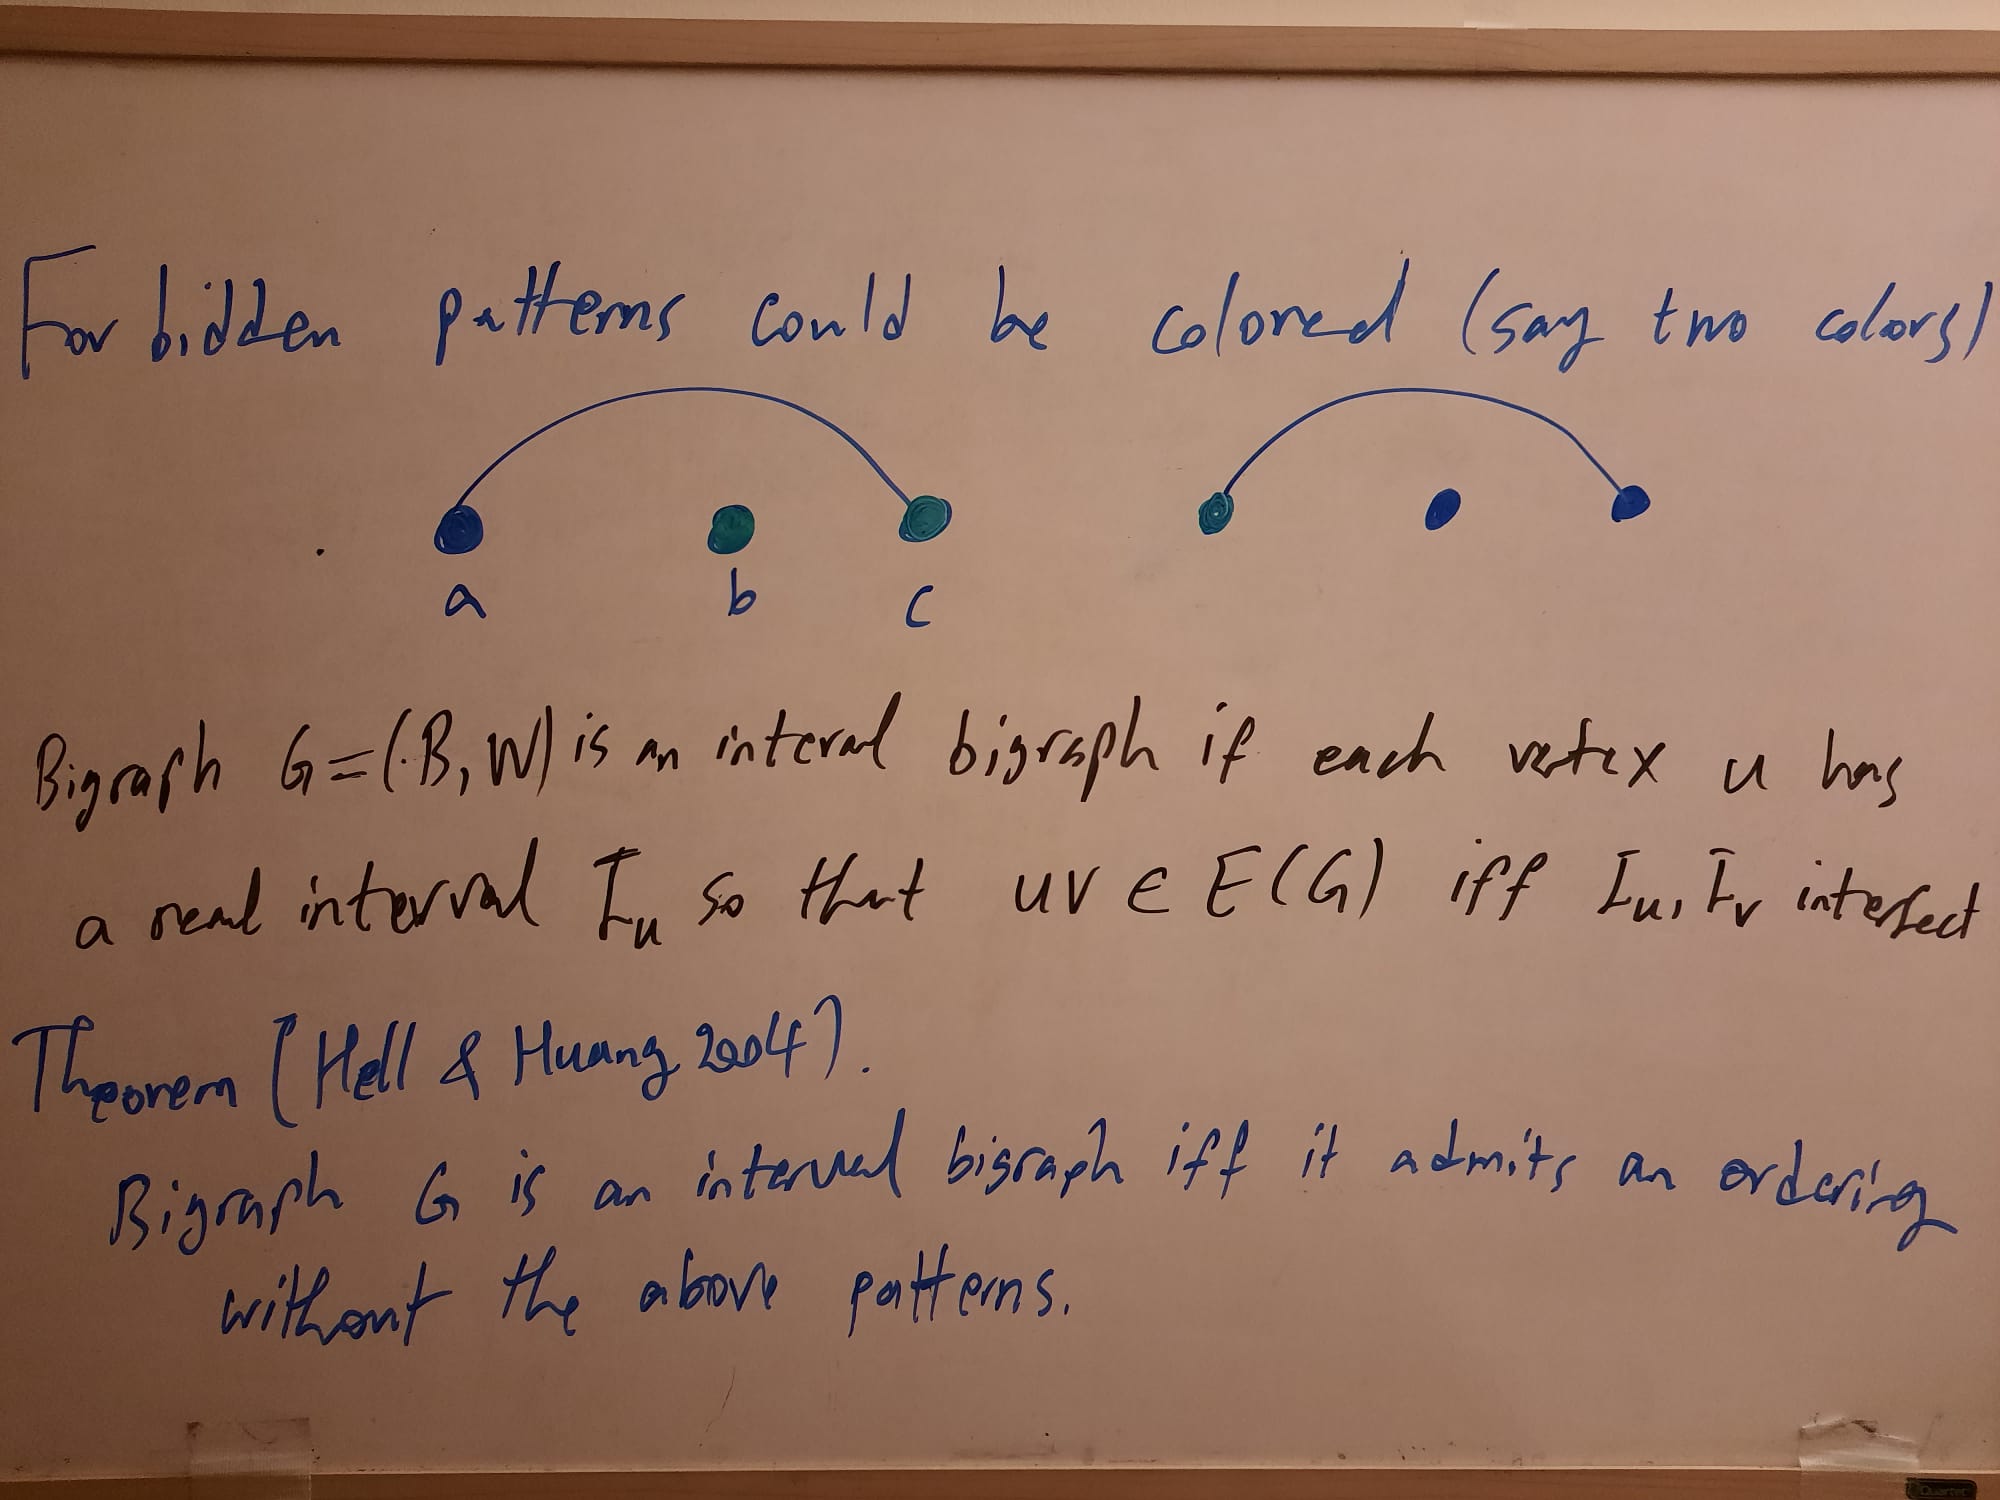 Forbidden patterns could be colored (say two colors)
a b c
Bigraph G=(B, W) is an interval bigraph if each vertex u has
a real interval Iu so that uv ∈ E(G) iff Iu, Iv intersect
Theorem [Hell & Huang 2004].
Bigraph G is an interval bigraph iff it admits an ordering
without the above patterns.
Quartet